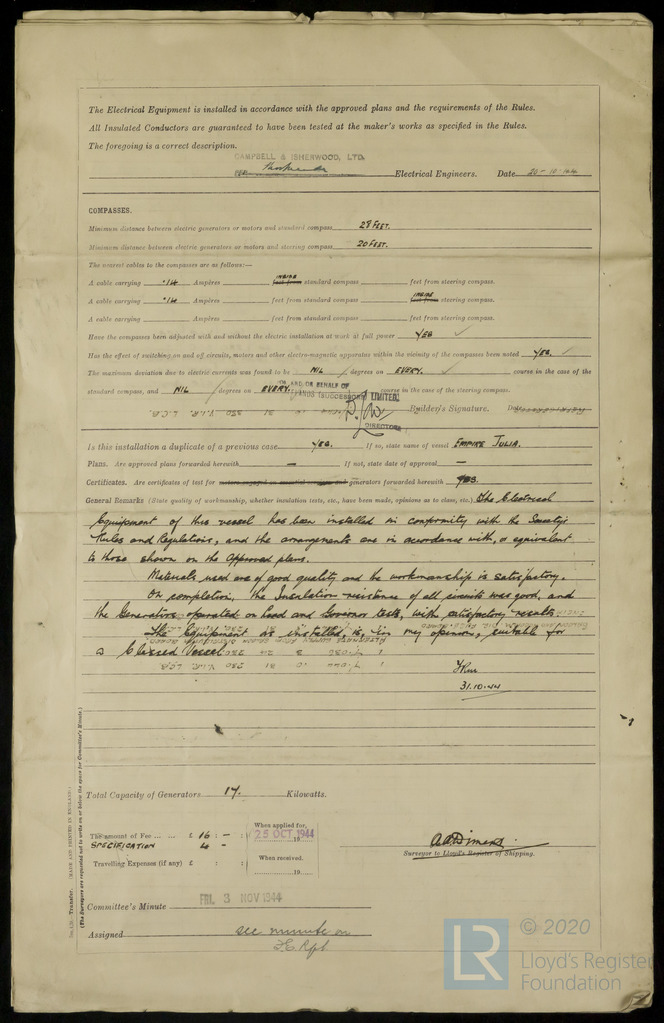 The Electrical Equipment is installed in accordance with the approved plans and the requirements of the Rules.
All Insulated Conductors are guaranteed to have been tested at the maker's works as specified in the Rules.
The foregoing is a correct description.
CAMPBELL & ISHERWOOD, LTD.
Electrical Engineers. Date 20-10-44
COMPASSES.
Minimum distance between electric generators or motors and standard compass 28 FEET.
Minimum distance between electric generators or motors and steering compass 20 FEET.
The nearest cables to the compasses are as follows:—
A cable carrying ·14 Ampères INSIDE feet from standard compass feet from steering compass.
A cable carrying ·14 Ampères feet from standard compass INSIDE feet from steering compass.
A cable carrying Ampères feet from standard compass feet from steering compass.
Have the compasses been adjusted with and without the electric installation at work at full power YES ✓
Has the effect of switching on and off circuits, motors and other electro-magnetic apparatus within the vicinity of the compasses been noted YES. ✓
The maximum deviation due to electric currents was found to be NIL degrees on EVERY. course in the case of the
standard compass, and NIL degrees on EVERY. course in the case of the steering compass.
AND ON BEHALF OF
(SUCCESSORS) LIMITED.
DIRECTOR
Builder's Signature.
Is this installation a duplicate of a previous case YES. If so, state name of vessel EMPIRE JULIA.
Plans. Are approved plans forwarded herewith — If not, state date of approval —
Certificates. Are certificates of test for motors engaged on essential services and generators forwarded herewith YES.
General Remarks (State quality of workmanship, whether insulation tests, etc., have been made, opinions as to class, etc.) The Electrical
Equipment of this vessel has been installed in conformity with the Society's
Rules and Regulations, and the arrangements are in accordance with, or equivalent
to those shown on the Approved plans.
Materials used are of good quality and the workmanship is satisfactory.
On completion, the Insulation resistance of all circuits was good, and
the Generators operated on Load and Governor tests, with satisfactory results.
The Equipment as installed, is, in my opinion, suitable for
a Classed Vessel
31.10.44
Total Capacity of Generators 17. Kilowatts.
The amount of Fee ... ... £ 16 : – :
SPECIFICATION 4 –
When applied for,
25 OCT 1944
19
Travelling Expenses (if any) £ : :
When received.
19
A.A. Dimens.
Surveyor to Lloyd's Register of Shipping.
Committee's Minute FRI. 3 NOV 1944
Assigned see minute on
Rpt
Transfer. (MADE AND PRINTED IN ENGLAND.)
(The Surveyors are requested not to write on or below the space for Committee's Minute.)
LR
© 2020
Lloyd's Register
Foundation